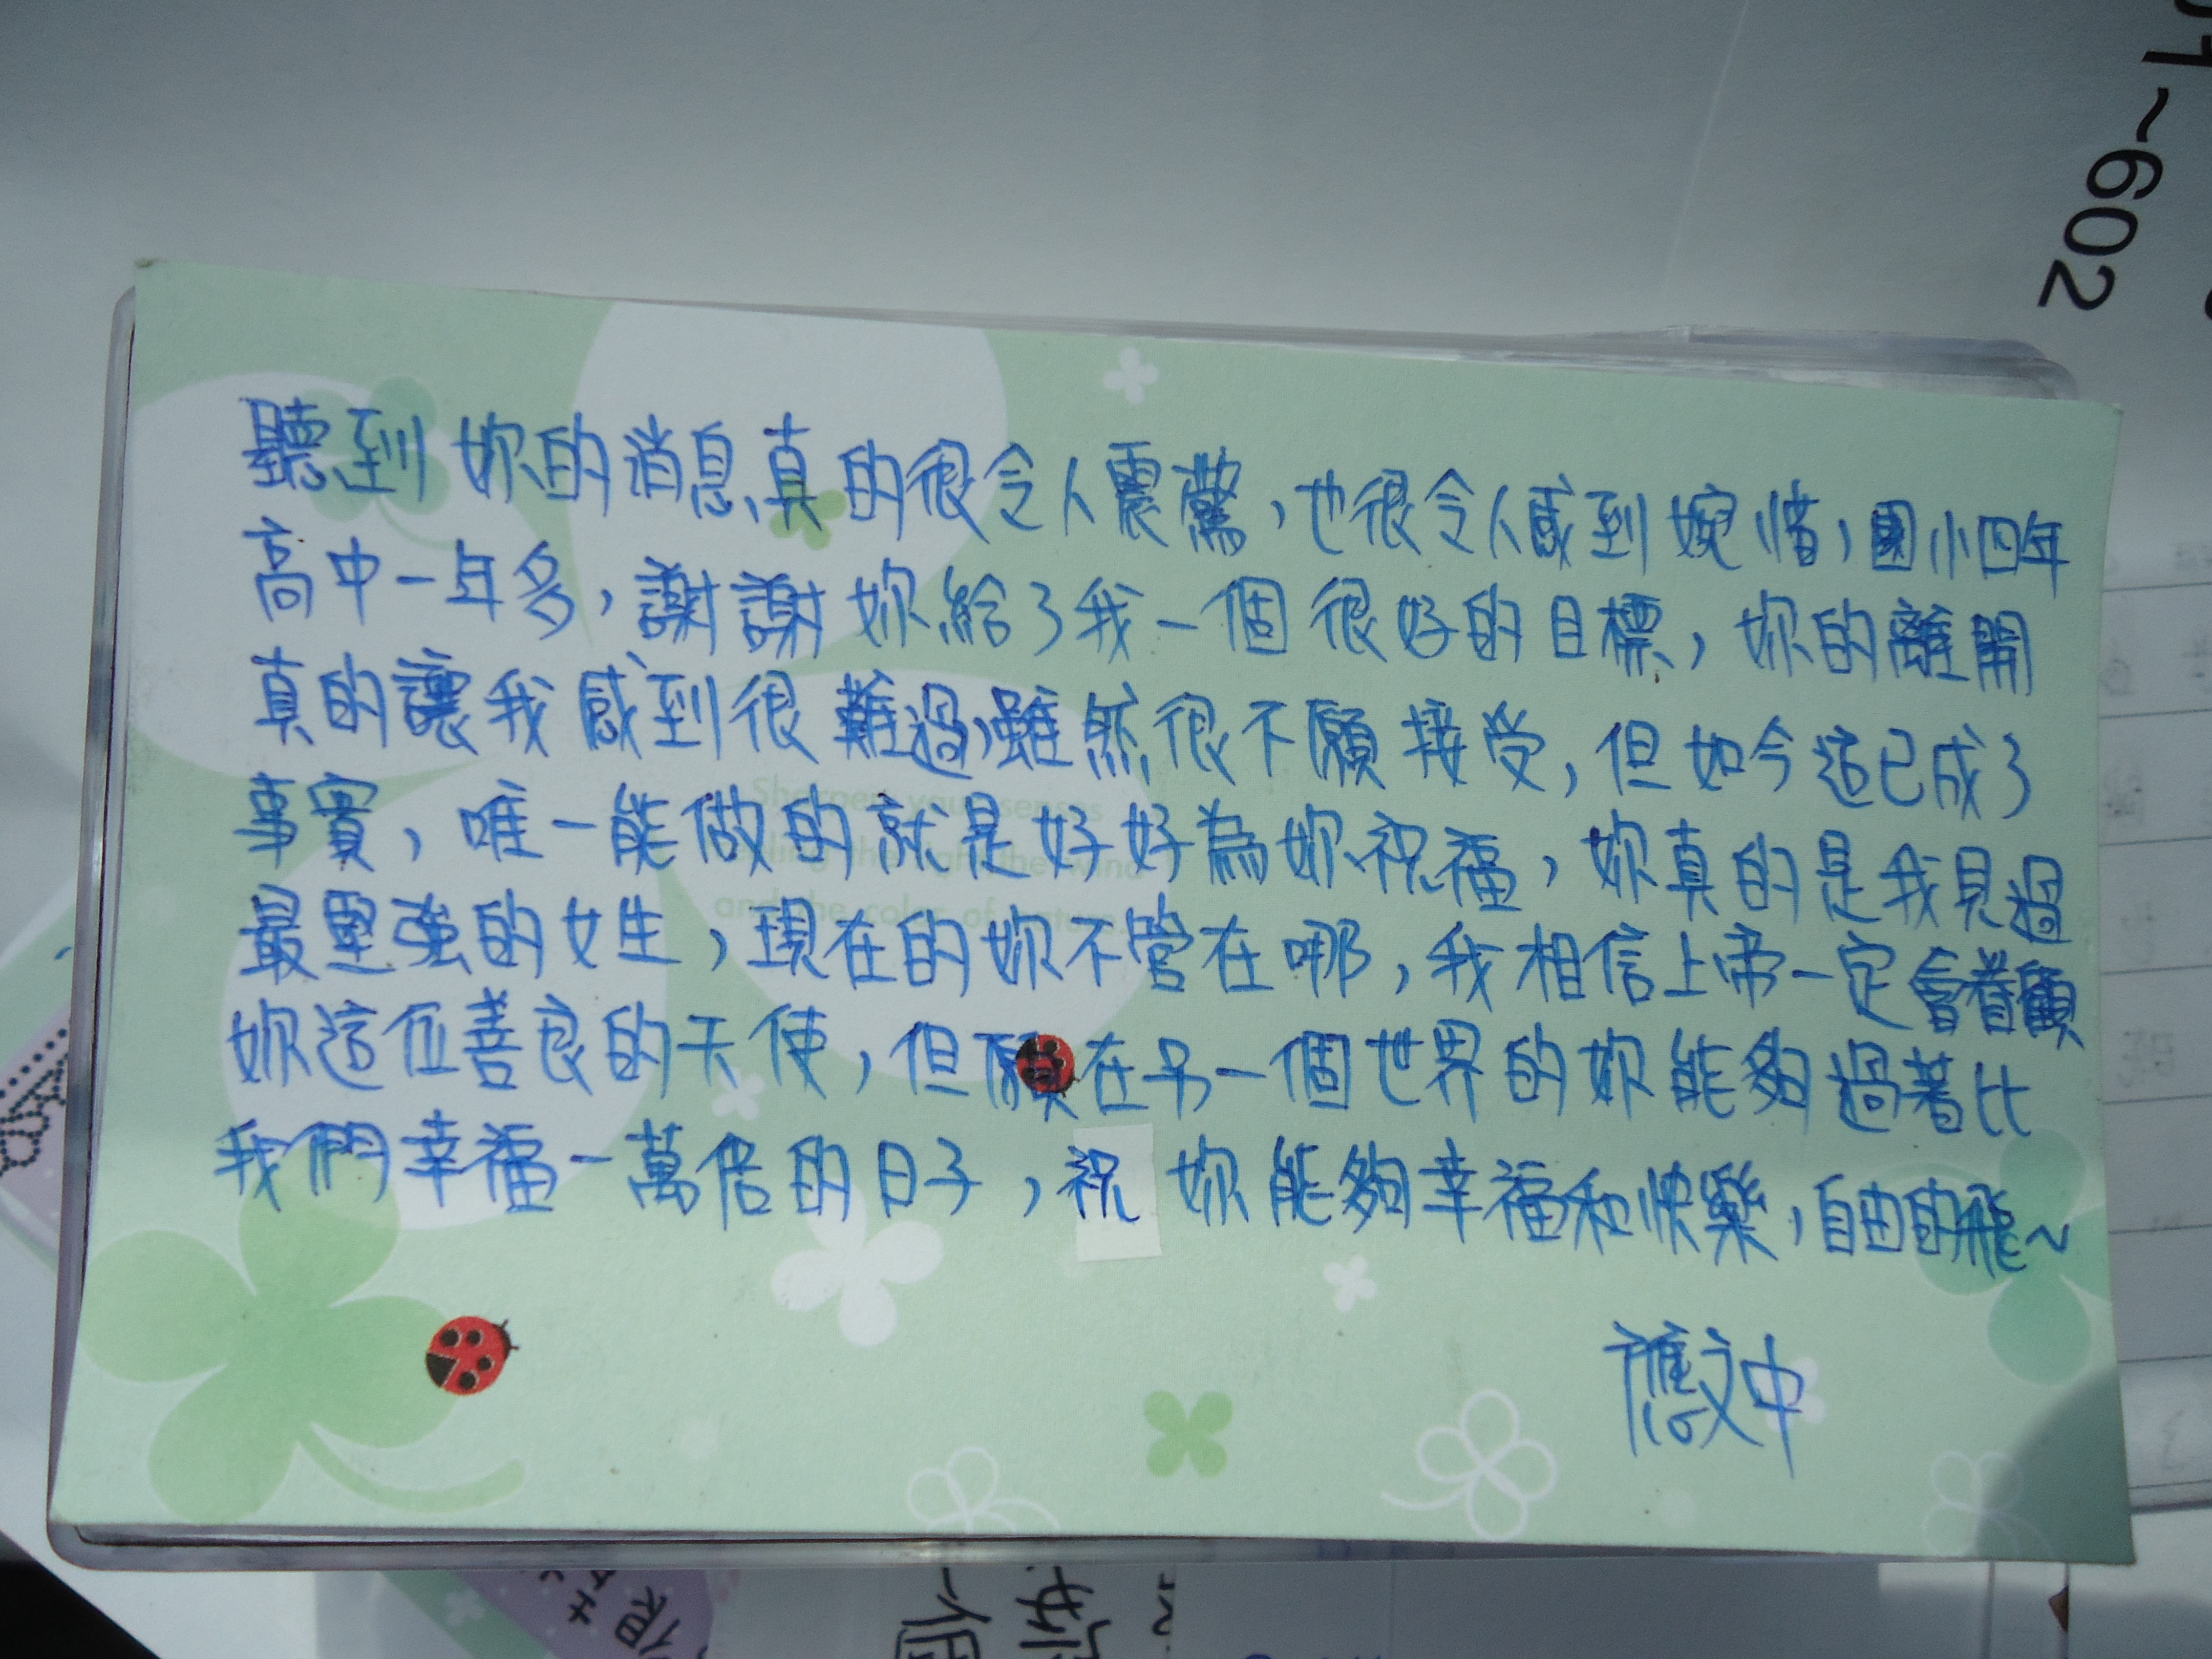 聽到妳的消息真的很令人震驚，也很令人感到婉惜，國小四年
高中一年多，謝謝妳給了我一個很好的目標，妳的離開
真的讓我感到很難過，雖然很不願接受，但如今這已成了
事實，唯一能做的就是好好為妳祝福，妳真的是我見過
最堅強的女生，現在的妳不管在哪，我相信上帝一定會眷顧
妳這位善良的天使，但願在另一個世界的妳能夠過著比
我們幸福一萬倍的日子，祝妳能夠幸福和快樂，自由的飛~
應文中
Sharpen your senses
and the color of nature
~602
一個